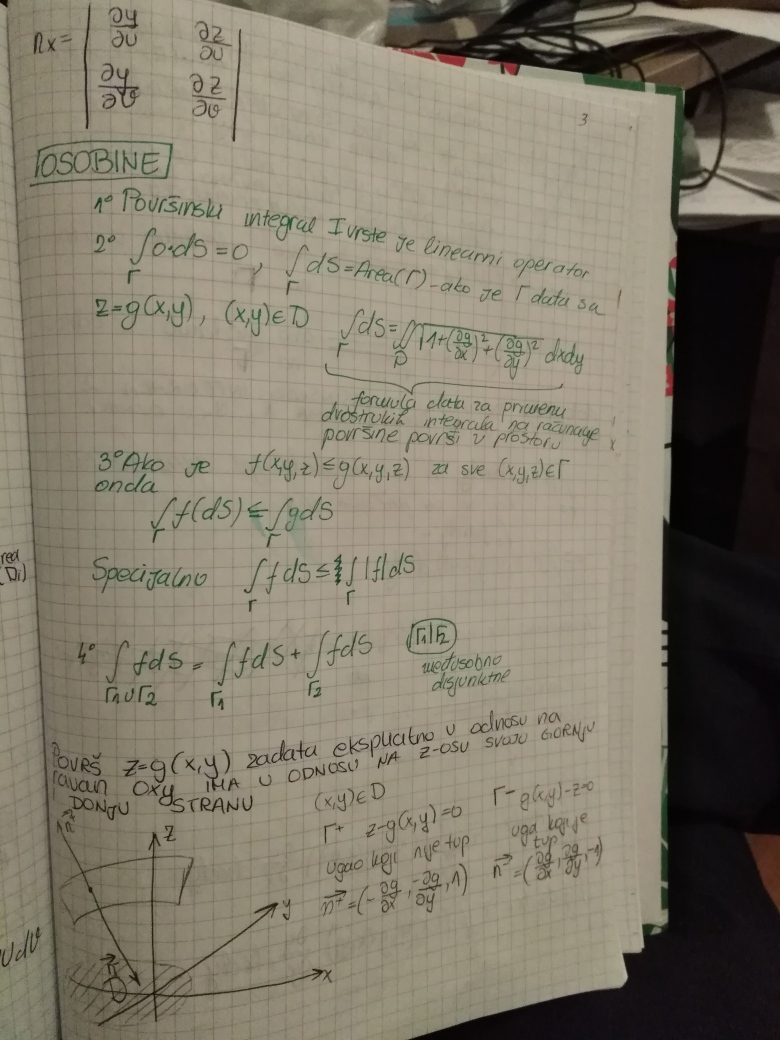 nx = | ∂y/∂u ∂z/∂u |
| ∂y/∂v ∂z/∂v |
3
OSOBINE
1° Površinski integral I vrste je linearni operator
2° ∫_Γ 0·dS = 0, ∫_Γ dS = Area(Γ) - ako je Γ data sa
z=g(x,y), (x,y)∈D ∫_Γ dS = ∬_D √(1+(∂g/∂x)²+(∂g/∂y)²) dxdy
formula data za primenu
dvostrukih integrala na računanje
površine površi u prostoru
3° Ako je f(x,y,z) ≤ g(x,y,z) za sve (x,y,z)∈Γ
onda
∫_Γ f(dS) ≤ ∫_Γ gdS
Specijalno ∫_Γ fdS ≤ ∫_Γ |f|dS
4° ∫_Γ1∪Γ2 fdS = ∫_Γ1 fdS + ∫_Γ2 fdS Γ1|Γ2
međusobno
disjunktne
POVRŠ z=g(x,y) zadata eksplicitno u odnosu na
ravan OXY IMA U ODNOSU NA Z-OSU SVOJU GORNJU
DONJU STRANU (x,y)∈D
Γ+ z-g(x,y)=0 Γ- g(x,y)-z=0
ugao koji nije tup ugao koji je
tup
n⃗+=(-∂g/∂x, -∂g/∂y, 1) n⃗-=(∂g/∂x, ∂g/∂y, -1)
z
y
n⃗
D
x
red
(Di)
UdV